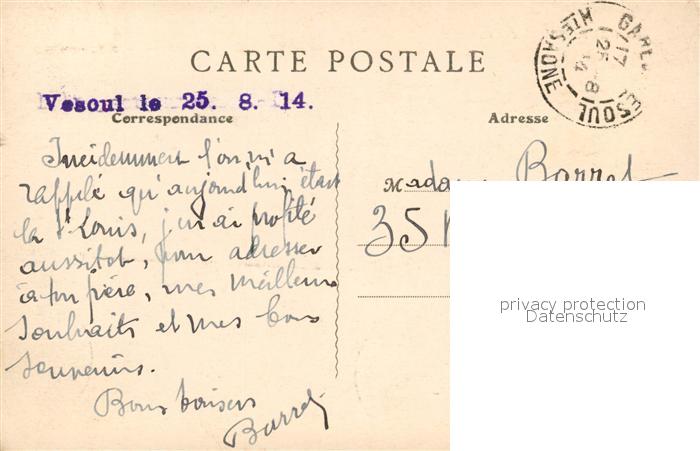 CARTE POSTALE
GARE VESOUL
17
25-8
14
HTE SAONE
Vesoul le 25. 8. 14.
Correspondance
Adresse
Incidemment l'on m'a
rappelé qu'aujourd'hui, était
la St Louis, j'en ai profité
aussitôt, pour adresser
à ton frère, mes meilleurs
souhaits et mes bons
souvenirs.
Bons baisers
Barret
Madame Barret
35
privacy protection
Datenschutz